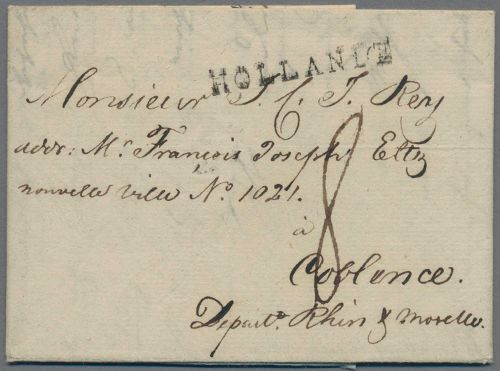 HOLLANDE
Monsieur J. C. J. Rey
addr: Mr. François Joseph Eltz
nouvelle ville No. 1021.
8
à
Coblence.
Depart. Rhin & Moselle.